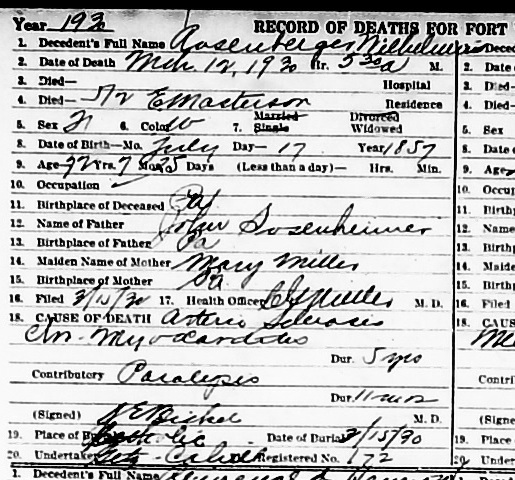 Year 1930 RECORD OF DEATHS FOR FORT
1. Decedent's Full Name Rosenberger Wilhelmina Deced
2. Date of Death Mch 12, 1930 Hr. 5 30 a M. 2. Date
3. Died— Hospital 3. Died-
4. Died— 512 E Masterson Residence 4. Died-
5. Sex F 6. Color W 7. Married Single Divorced Widowed 5. Sex
8. Date of Birth—Mo. July Day— 17 Year 1857 8. Date
9. Age 72 Yrs. 7 Mos. 25 Days (Less than a day)— Hrs. Min. 9. Age
10. Occupation 10. Occup
11. Birthplace of Deceased Pa 11. Birthp
12. Name of Father John Rosenheimer 12. Name
13. Birthplace of Father Pa 13. Birthp
14. Maiden Name of Mother Mary Miller 14. Maide
15. Birthplace of Mother Pa 15. Birth
16. Filed 3/15/30 17. Health Officer M. D. 16. Filed
18. CAUSE OF DEATH Arterio Sclerosis 18. CAUS
Chr. Myocarditis
Dur. 5 yrs
Contributory Paralysis Contri
Dur. 11 mos
(Signed) Bickel M. D. (Signe
19. Place of Burial Catholic Date of Burial 3/15/30 19. Place
20. Undertaker Getz-Cahill Registered No. 172 20. Under
1. Decedent's Full Name 1. Dece